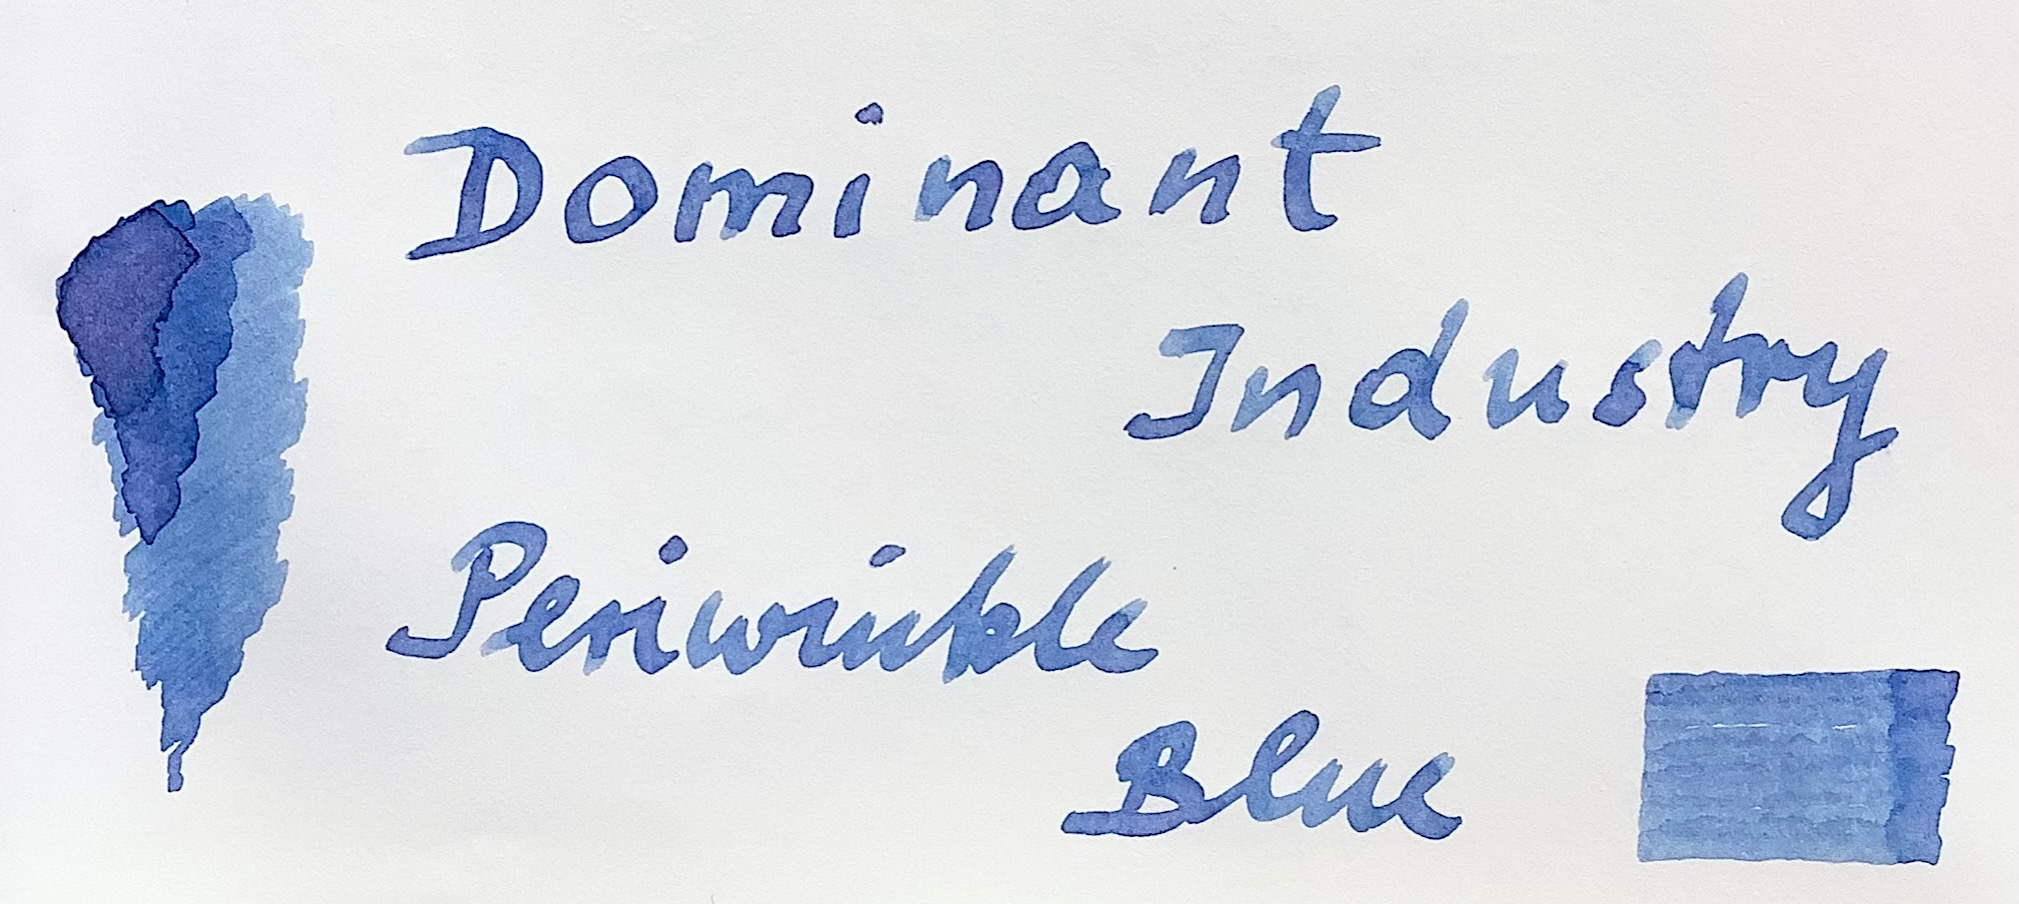 Dominant
Industry
Periwinkle
Blue